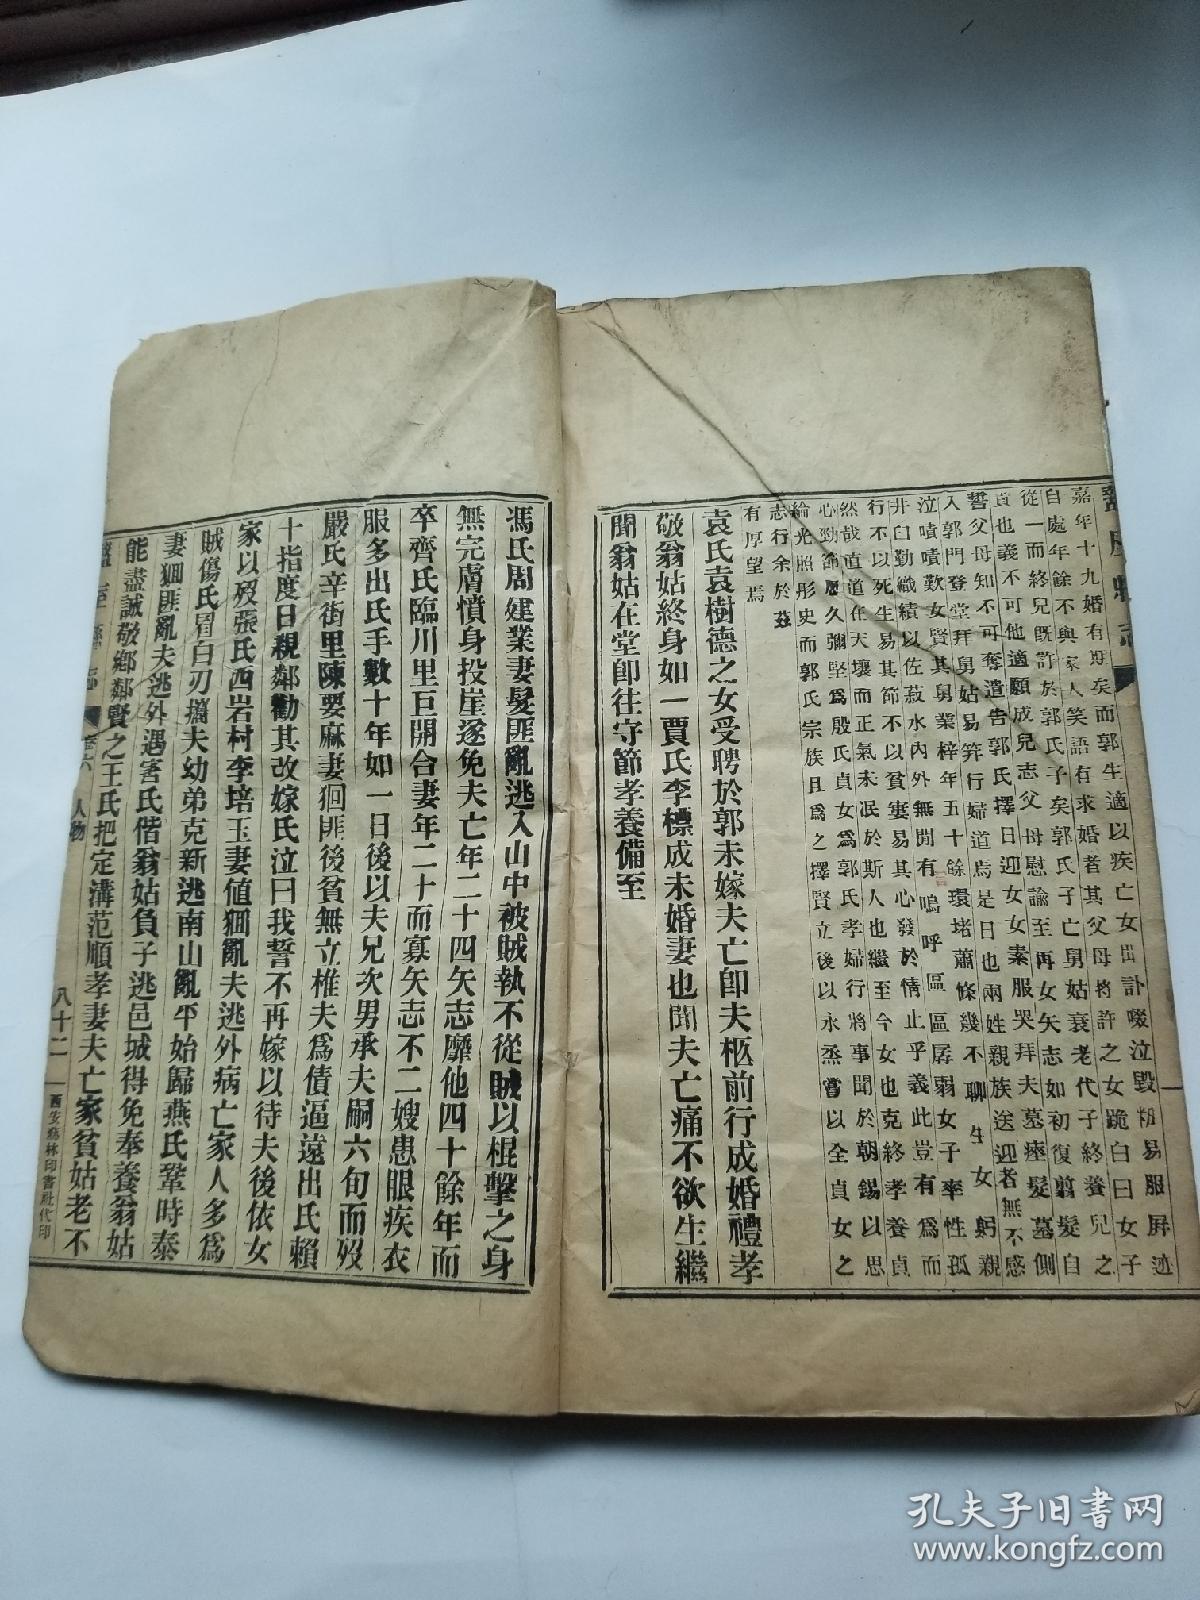 盩厔縣志
嘉年十九婚有期矣而郭生適以疾亡女出訃啜泣毀粧易服屏迹
自處年餘不與家人笑語有求婚者其父母將許之女跪白曰女子
從一而終兒既許於郭氏子矣郭氏子亡舅姑衰老代子終養兒之
責也義不可他適願成兒志父母慰諭至再女矢志如初復翦髮自
誓父母知不可奪遣告郭氏擇日迎女女素服哭拜夫墓瘞髮墓側
入郭門登堂拜舅姑易笄行婦道焉是日也兩姓親族送迎者無不感
泣嘖嘖歎女賢其舅業梓年五十餘環堵蕭條幾不聊生女躬親
井臼勤織績以佐菽水內外無閒有嗚呼區區孱弱女子率性孤
行不以死生易其節不以貧窶易其心發於情止乎義此豈有為而
然哉直道在天壤而正氣未泯於斯人也繼至今女也克終孝養貞
心勁節歷久彌堅為殷氏貞女為郭氏孝婦行將事聞於朝錫以思
綸光照彤史而郭氏宗族且為之擇賢立後以永烝嘗以全貞女之
志行余於茲
有厚望焉
袁氏袁樹德之女受聘於郭未嫁夫亡卽夫柩前行成婚禮孝
敬翁姑終身如一賈氏李標成未婚妻也聞夫亡痛不欲生繼
聞翁姑在堂卽往守節孝養備至
馮氏周建業妻髮匪亂逃入山中被賊執不從賊以棍擊之身
無完膚憤身投崖遂免夫亡年二十四矢志靡他四十餘年而
卒齊氏臨川里巨開合妻年二十而寡矢志不二嫂患眼疾衣
服多出氏手數十年如一日後以夫兄次男承夫嗣六旬而歿
嚴氏辛街里陳要麻妻回匪後貧無立椎夫為債逼遠出氏賴
十指度日親鄰勸其改嫁氏泣曰我誓不再嫁以待夫後依女
家以歿張氏西岩村李培玉妻值㹶亂夫逃外病亡家人多為
賊傷氏冒白刃攜夫幼弟克新逃南山亂平始歸燕氏鞏時泰
妻㹶匪亂夫逃外遇害氏偕翁姑負子逃邑城得免奉養翁姑
能盡誠敬鄉鄰賢之王氏把定溝范順孝妻夫亡家貧姑老不
盩厔縣志 卷六 人物 八十二 西安藝林印書社代印
孔夫子旧书网
www.kongfz.com